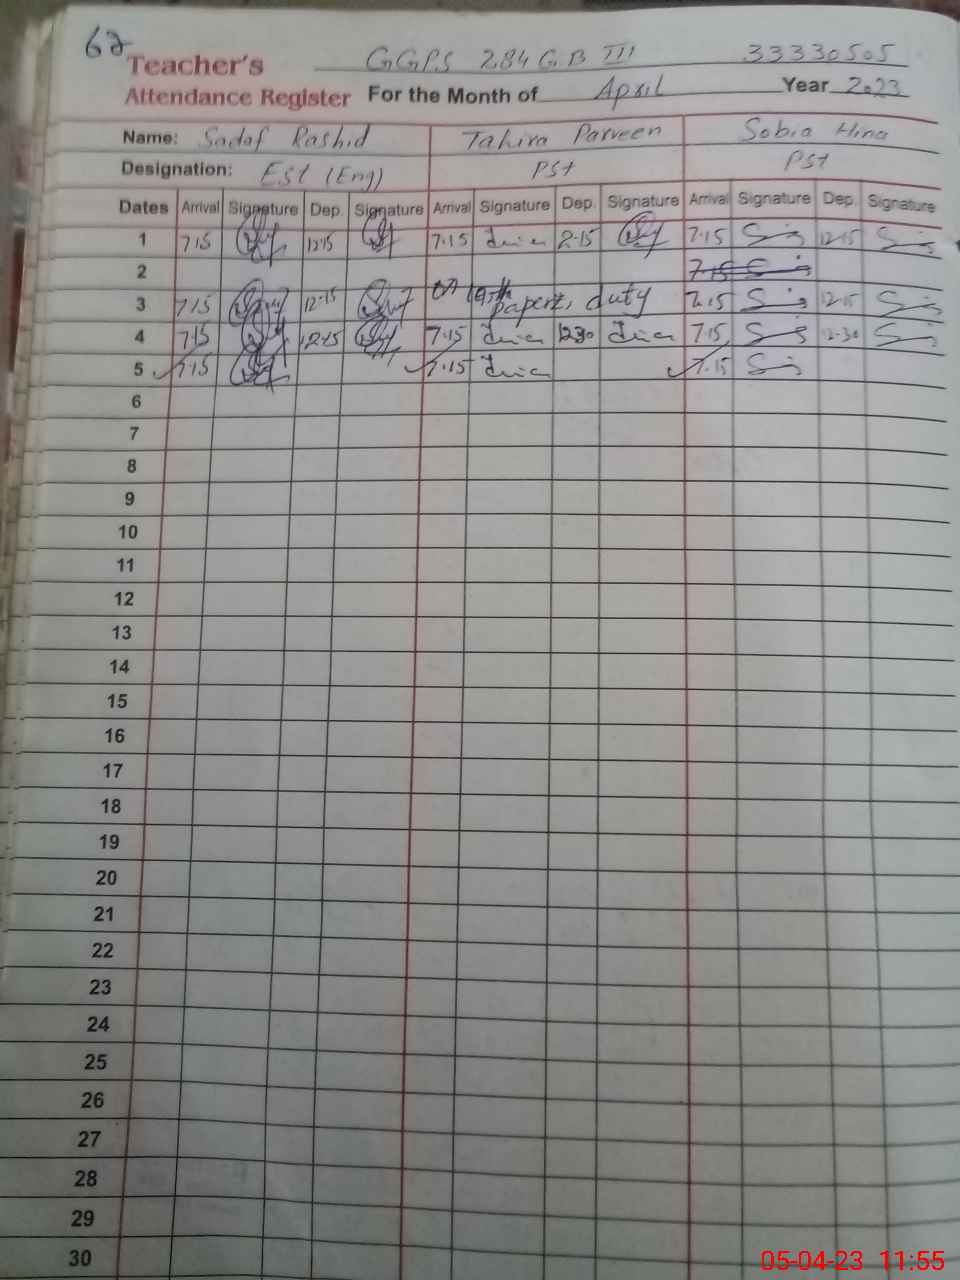 62
GGPS 284 G.B III 33330505
Teacher's
Attendance Register For the Month of April Year 2023
Name: Sadaf Rashid Tahira Parveen Sobia Hina
Designation: Est (Eng) PST PST
Dates Arrival Signature Dep. Signature Arrival Signature Dep. Signature Arrival Signature Dep. Signature
1 7.15 12.15 7.15 2.15 7.15 12.15
2 7.15
3 7.15 12.15 papers, duty 7.15 12.15
4 7.15 12.15 7.15 12.30 7.15 12.30
5 7.15 7.15 7.15
6
7
8
9
10
11
12
13
14
15
16
17
18
19
20
21
22
23
24
25
26
27
28
29
30
05-04-23 11:55